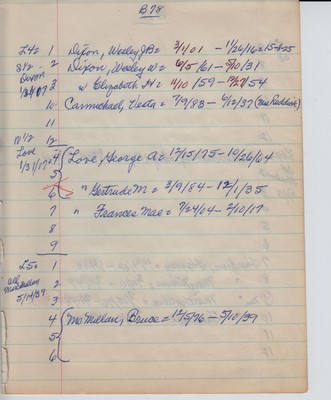 B78
L4= 1 Dixon, Wesley J B= 3/1/01 - 11/26/16=15-8-25
S 1/2 - 2 Dixon, Wesley W= 6/5/61-5/10/31
Dixon
1/24/07 3 " Elizabeth H= 11/10/59-12/27/54
10 Carmichael, Vesta= 7/9/83-6/2/37 (Mae Reddick)
11
N 1/2 12
Love
1/31/17 4 Love, George A= 12/15/75-10/26/64
5
6 " Gertrude M= 3/9/84-12/1/35
7 " Frances Mae= 7/24/04-2/10/17
8
9
L5= 1
all
McMillan 2
5/14/39
3
4 McMillan, Bruce= 12/5/76-5/10/39
5
6